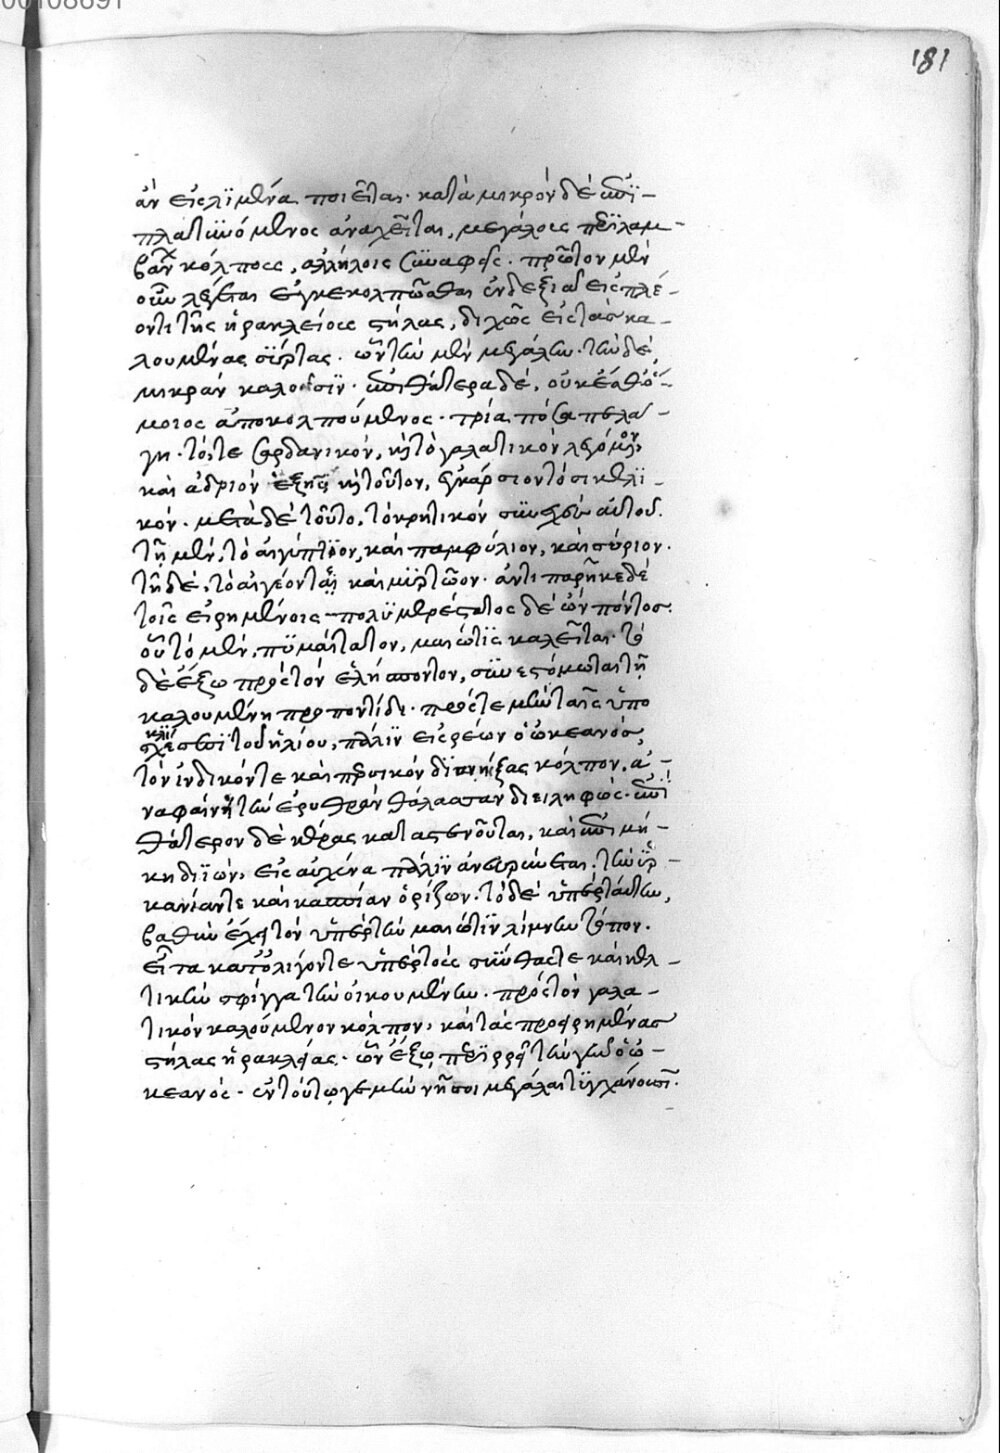 181
ἂν εἰς λϊμένα ποιεῖται· κατὰ μικρὸν δὲ ἐπϊ-
πλατϋνόμενος ἀναχεῖται, μεγάλους περϊλαμ-
βάνων κόλπους, ἀλλήλοις συναφεῖς· πρῶτον μὲν
οὖν λέγεται ἐγκεκολπῶσθαι ἐν δεξιᾷ εἰσπλέ-
οντι τὰς ἡρακλείους στήλας, διχῶς εἰς τὰς κα-
λουμένας σύρτας· ὧν τὴν μὲν μεγάλην· τὴν δὲ,
μικρὰν καλοῦσϊν· ἐπὶ θάτερα δὲ, οὐκέθ' ὁ-
μοιος ἀποκολπούμενος· τρία ποιεῖ πελά-
γη· τό, τε σαρδονικόν, καὶ τὸ γαλατικὸν λεγόμενον,
καὶ ἀδρίον ἑξῆς καὶ τοῦτον, ἐγκάρσιον τὸ σικελϊ-
κόν· μετὰ δὲ τοῦτο, τὸ κρητικόν συνεχὲς αὐτοῦ.
τῇ μὲν, τὸ αἰγύπτϊον, καὶ παμφύλιον, καὶ σύριον·
τῇ δὲ, τὸ αἰγέον καὶ μϋρτῶον· ἀντιπαρήκει δὲ
τοῖς εἰρημένοις πολϋμερέστατος δὲ ὢν πόντος·
οὗ τὸ μὲν, μυχαίτατον, μαιώτϊς καλεῖται· τὸ
δὲ ἔξω πρὸς τὸν ἑλήσποντον, συνεστόμωται τῇ
καλουμένῃ προποντίδι· πρός τε μὴν ταῖς ὑπο
σχέσεσϊ τοῦ ἡλίου, πάλϊν εἰσρέων ὁ ὠκεανὸς,
τὸν ἰνδικόν τε καὶ περσικὸν διανοίξας κόλπον, ἀ-
ναφαίνει τὴν ἐρυθρὰν θάλασσαν διειληφώς· ἐπὶ
θάτερον δὲ κέρας κατὰ στενοῦται, καὶ ἐπιμή-
κη διϊὼν, εἰς αὐχένα πάλϊν ἀνευρύνεται, τὴν ὑρ-
κανίαν τε καὶ κασπίαν ὁρίζων· τὸ δὲ ὑπὲρ ταύτην,
βαθὺν ἔχει τὸν ὑπὲρ τὴν μαιώτϊν λίμνην τόπον.
εἶτα κατ' ὀλίγον τε ὑπὲρ τοὺς σκύθας τε καὶ κελ-
τικὴν σφίγγει τὴν οἰκουμένην· πρός τὸν γαλα-
τικὸν καλούμενον κόλπον, καὶ τὰς προειρημένας
στήλας ἡρακλείας· ὧν ἔξω περϊρρεῖ τὴν γῆν ὁ ὠ-
κεανός· ἐν τούτῳ γε μὴν νῆσοι μεγάλαι τϋγχάνουσι·